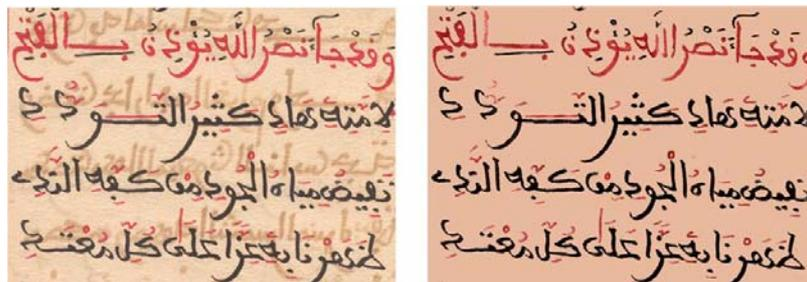 وقد جآ نصر الله يؤذن بالفتح
لامته هاد كثير التودد
تفيض مياه الجود من كفه الندي
ظفرنا به عزا على كل معتد
وقد جآ نصر الله يؤذن بالفتح
لامته هاد كثير التودد
تفيض مياه الجود من كفه الندي
ظفرنا به عزا على كل معتد